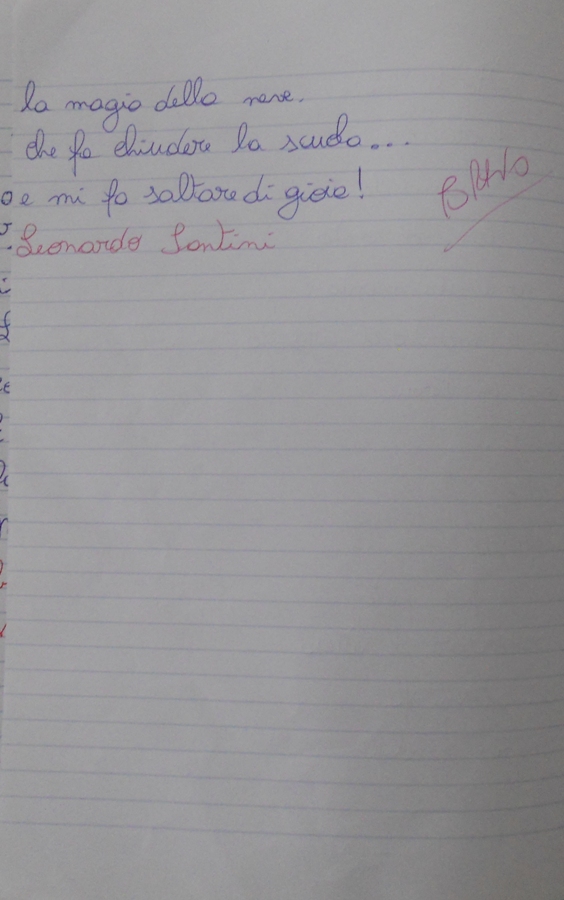 la magia della neve.
che fa chiudere la scuola...
e mi fa saltare di gioia!
BRAVO
Leonardo Santini